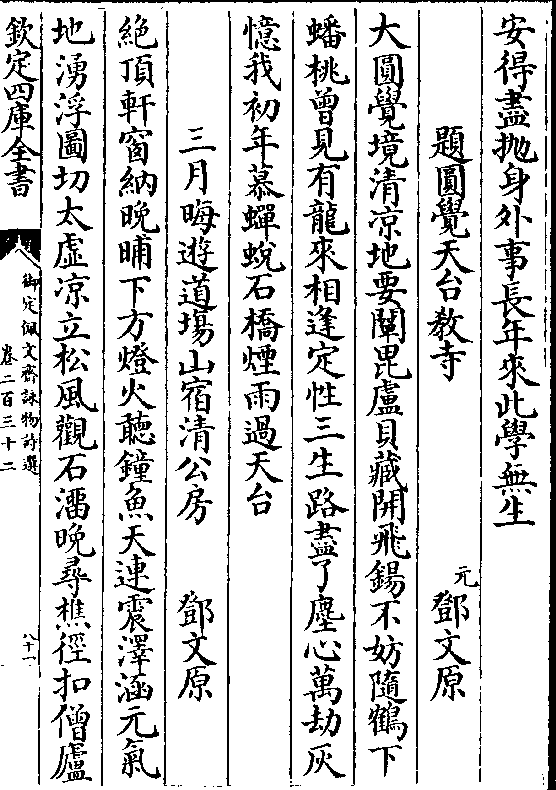 安得盡抛身外事長年來此學無生
題圓覺天台教寺
元鄧文原
大圓覺境清凉地要闡毘盧貝藏開飛錫不妨隨鶴下
蟠桃曾見有龍來相逢定性三生路盡了塵心萬劫灰
憶我初年慕蟬蛻石橋煙雨過天台
三月晦遊道塲山宿清公房
鄧文原
絶頂軒窗納晚晡下方燈火聽鐘魚天連震澤涵元氣
地湧浮圖切太虛凉立松風觀石溜晚尋樵徑扣僧廬
欽定四庫全書
御定佩文齋詠物詩選
卷二百三十二
八十一